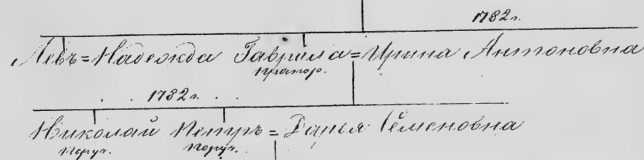 1782 г.
Левъ = Надежда Гаврила = Ирина Антоновна
прапор.
1782 г.
Николай Петръ = Дарья Семеновна
поруч. поруч.